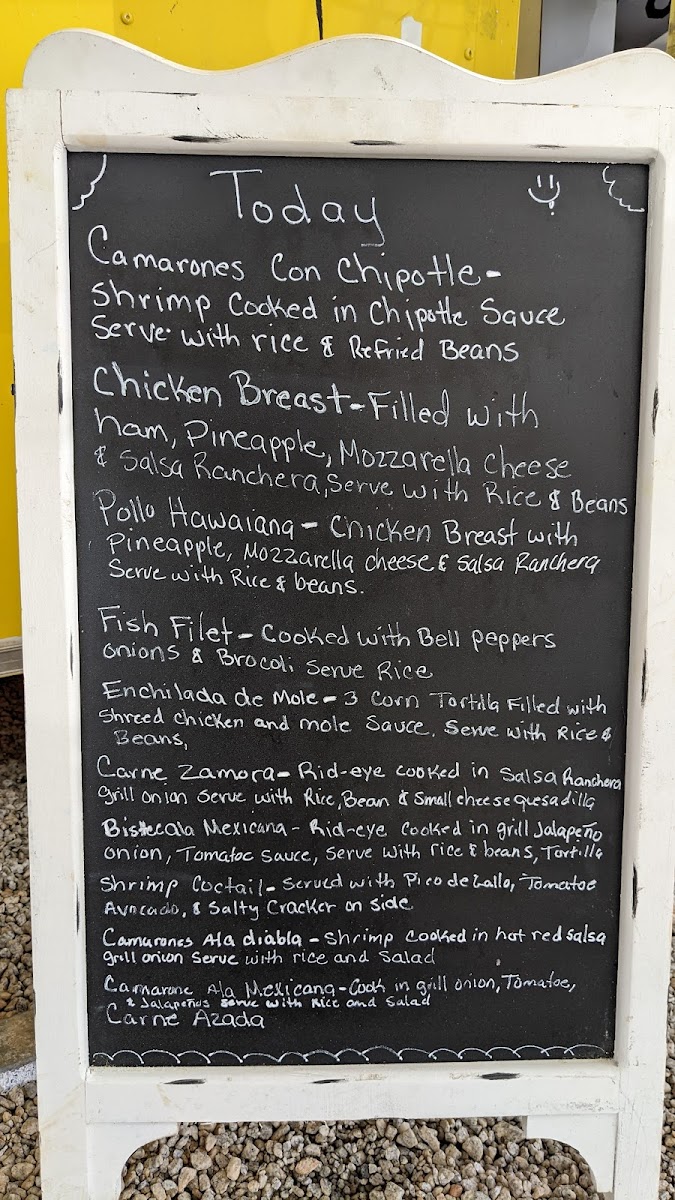 Today
Camarones Con Chipotle-
shrimp Cooked in Chipotle Sauce
Serve with rice & Refried Beans
Chicken Breast-Filled with
ham, Pineapple, Mozzarella Cheese
& Salsa Ranchera, Serve with Rice & Beans
Pollo Hawaiana - Chicken Breast with
Pineapple, Mozzarella cheese & Salsa Ranchera
Serve with Rice & beans.
Fish Filet - Cooked with Bell peppers
onions & Brocoli Serve Rice
Enchilada de Mole - 3 Corn Tortilla Filled with
Shreed chicken and mole Sauce. Serve with Rice &
Beans,
Carne Zamora - Rid-eye cooked in Salsa Ranchera
grill onion Serve with Rice, Bean & Small cheese quesadilla
Bistec ala Mexicana - Rid-eye Cooked in grill Jalapeño
onion, Tomatoe Sauce, Serve with rice & beans, Tortilla
Shrimp Coctail - Served with Pico de Gallo, Tomatoe
Avocado, & Salty Cracker on side
Camarones Ala diabla - Shrimp Cooked in hot red salsa
grill onion Serve with rice and Salad
Camarone Ala Mexicana - Cook in grill onion, Tomatoe,
& Jalapeños serve with Rice and Salad
Carne Azada